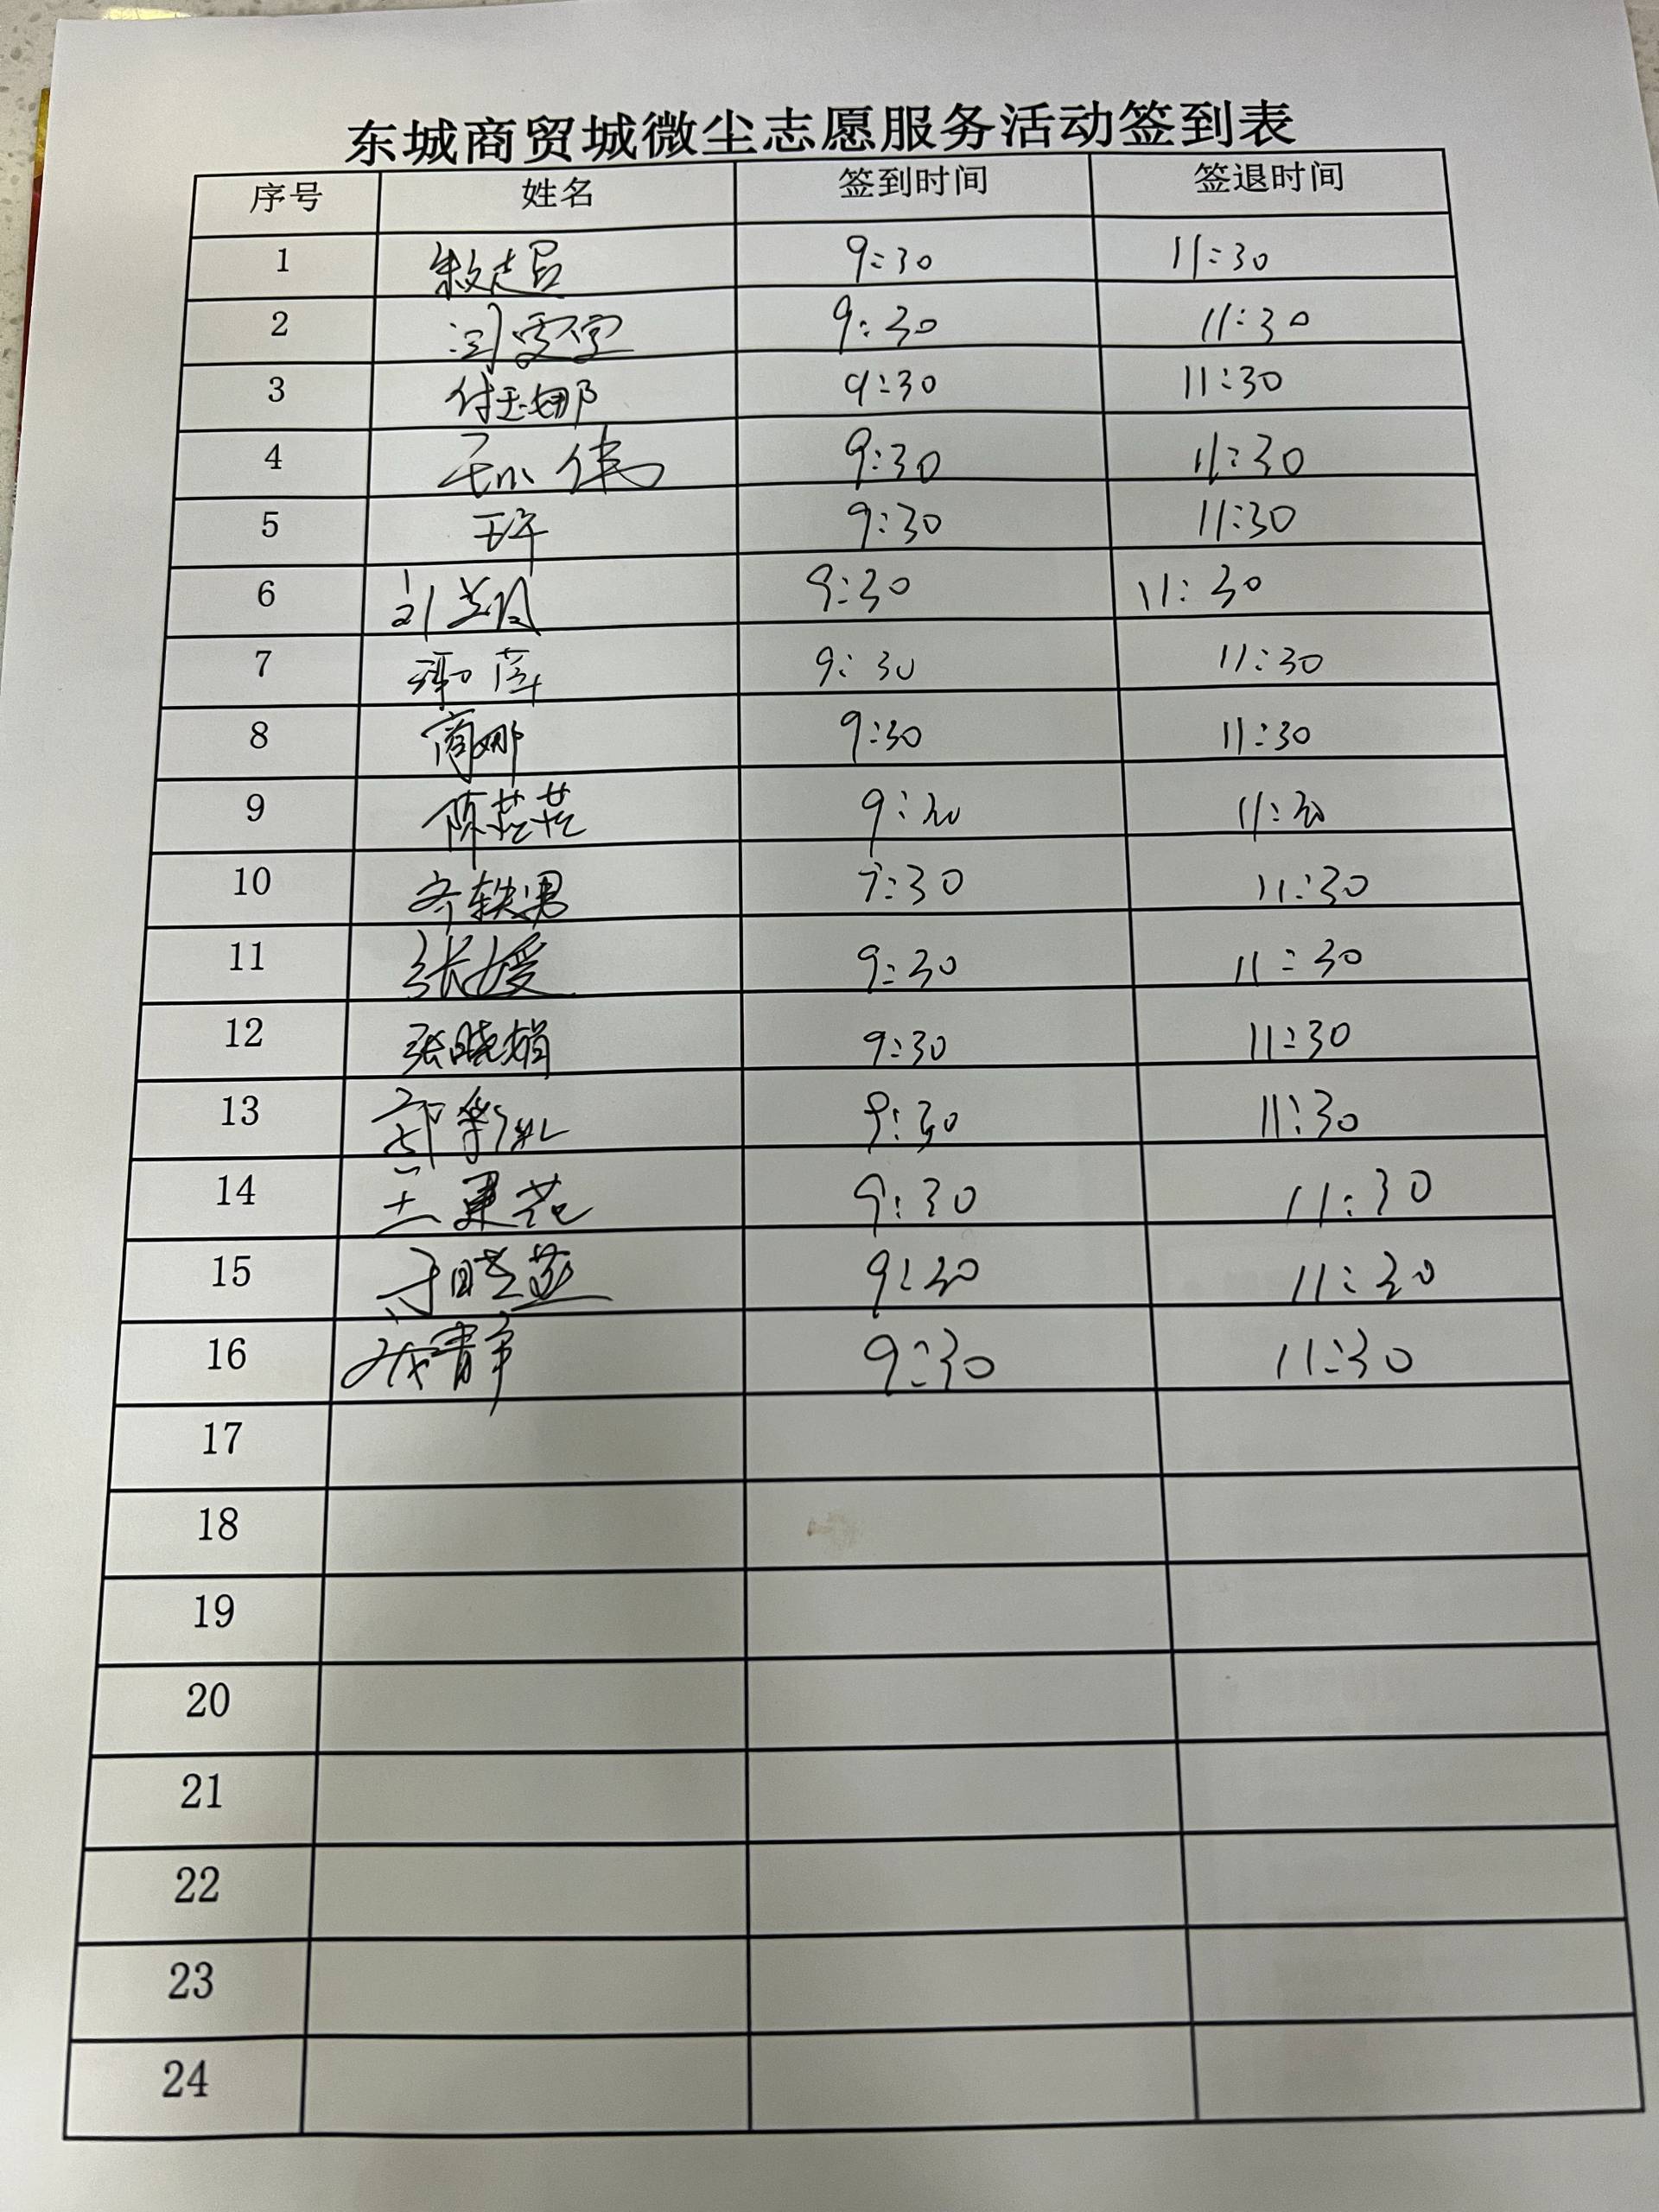 东城商贸城微尘志愿服务活动签到表
序号 姓名 签到时间 签退时间
1 9:30 11:30
2 9:30 11:30
3 付玉娜 9:30 11:30
4 孙伟 9:30 11:30
5 9:30 11:30
6 9:30 11:30
7 9:30 11:30
8 商娜 9:30 11:30
9 陈芸芸 9:30 11:30
10 齐轶男 9:30 11:30
11 张媛 9:30 11:30
12 张晓娟 9:30 11:30
13 9:30 11:30
14 9:30 11:30
15 于晓燕 9:30 11:30
16 9:30 11:30
17
18
19
20
21
22
23
24